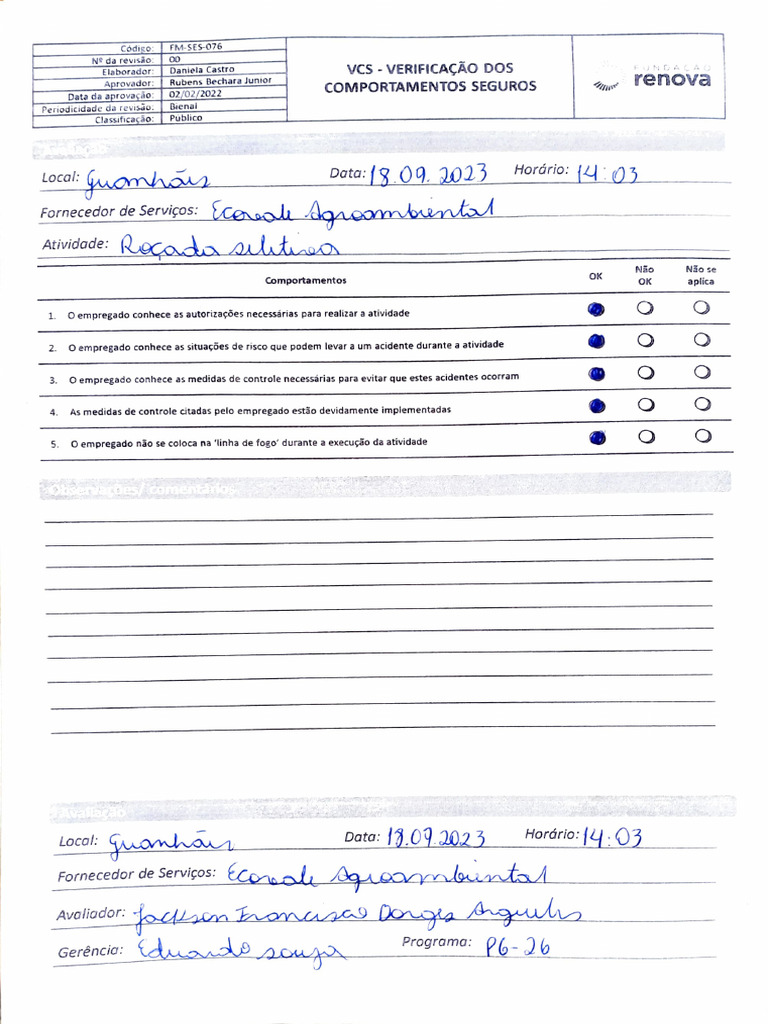 Código: FM-SES-076
Nº da revisão: 00
Elaborador: Daniela Castro
Aprovador: Rubens Bechara Junior
Data da aprovação: 02/02/2022
Periodicidade da revisão: Bienal
Classificação: Público
VCS - VERIFICAÇÃO DOS
COMPORTAMENTOS SEGUROS
FUNDAÇÃO
renova
Local: Guanhães Data: 18.09.2023 Horário: 14:03
Fornecedor de Serviços: Ecovale Agroambiental
Atividade: Roçada seletiva
Comportamentos OK Não OK Não se aplica
1. O empregado conhece as autorizações necessárias para realizar a atividade
2. O empregado conhece as situações de risco que podem levar a um acidente durante a atividade
3. O empregado conhece as medidas de controle necessárias para evitar que estes acidentes ocorram
4. As medidas de controle citadas pelo empregado estão devidamente implementadas
5. O empregado não se coloca na 'linha de fogo' durante a execução da atividade
Observações/ comentários
Avaliação
Local: Guanhães Data: 18.09.2023 Horário: 14:03
Fornecedor de Serviços: Ecovale Agroambiental
Avaliador: Jackson Francisco Borges
Gerência: Eduardo Souza Programa: PG-26